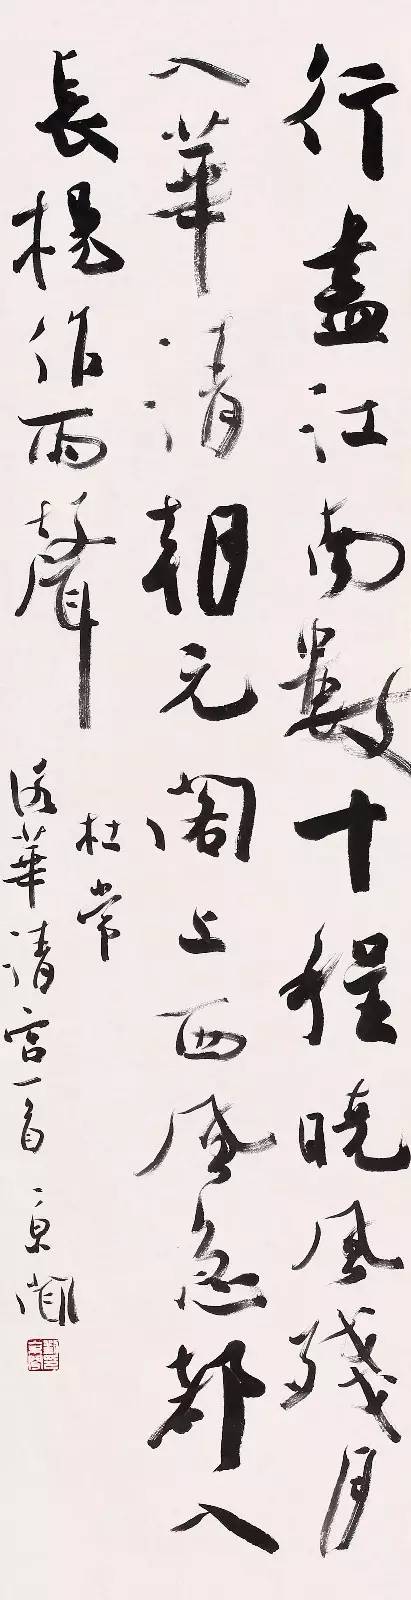 行盡江南數十程曉風殘月
入華清朝元閣上西風急都入
長楊作雨聲
杜常
詠華清宮一首